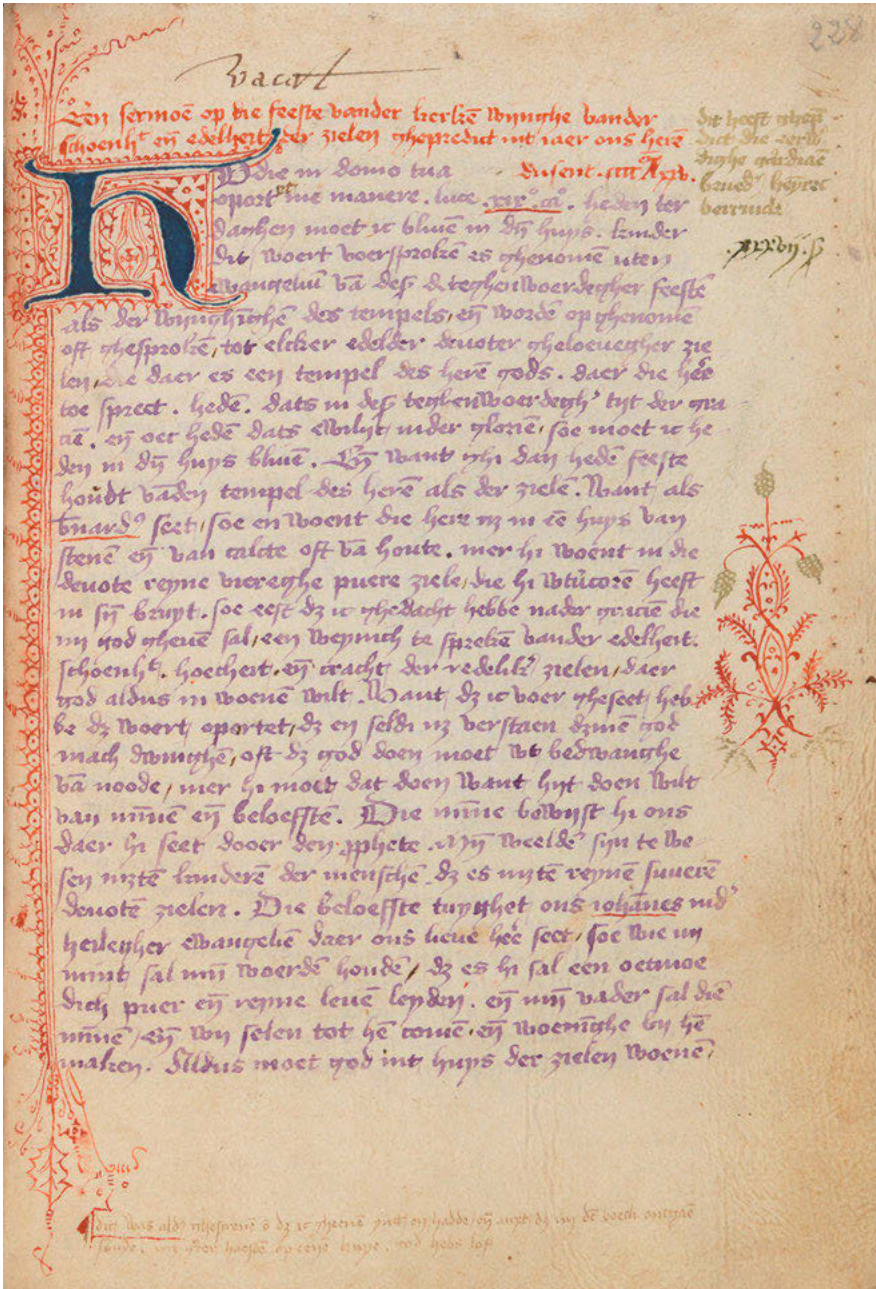 228
vacat
Een sermoē op die feeste vander kerkē wijnghe vander
schoenhᵗ eñ edelheit der zielen ghepredict int iaer ons herē
dusent
Hodie in domo tua
oportet me manere. luce .xix°. ca°. heden ter
daghen moet ic bliuē in dijn huys. kinder
dit woert voersprokē es ghenomē uten
ewangeliū vā deser teghenwoerdegher feestē
als der wijnghīghē des tempels, eñ wordē op ghenomē
oft ghesprokē, tot elcker edelder deuoter gheloeuegher zie
len, die daer es een tempel des herē gods. daer die here
toe sprect. hedē. dats in deser teghenwoerdegher tijt der gra
ciē. eñ oec hedē dats ewilijc inder gloriē, soe moet ic he
den in dijn huys bliuē. Eñ want ghi dan hedē feeste
houdt vādey tempel des herē als der zielē. Want als
b̄nardꝰ seet, soe en woent die here nz in eē huys van
stenē eñ van calcke oft vā houte. mer hi woent in die
deuote reyne viereghe puere ziele, die hi wtūcorē heeft
in sijn bruyt. soe eest dz ic ghedacht hebbe nader graciē die
mij god gheuē sal, een weynich te sprekē vander edelheit.
schoenhᵗ. hoecheit, eñ cracht der redeliker zielen, daer
god aldus in woenē wilt. Want dz ic voer gheseet heb
be dz woert, oportet, dz en seldi nz verstaen dzmē god
mach dwinghē, oft dz god doen moet wt bedwanghe
vā noode, mer hi moet dat doen want hijt doen wilt
van mīnē eñ beloefftē. Die mīne bewijst hi ons
daer hi seet dooer den prophete. Mijn weeldē sijn te we
sen mztē kinderē der menschē dz es mztē reynē suuerē
deuotē zielen. Die beloeffte tuyghet ons iohānes inder
heilegher ewangeliē daer ons lieue here seet, soe wie mij
mint sal mijn woerdē houdē, dz es hi sal een oetmoe
dich puer eñ reyne leuē leydey. eñ mijn vader sal diē
mīnē, eñ wij selen tot hē comē, eñ woenīghe bij hē
maken. Aldus moet god int huys der zielen woenē,
dit heeft ghep̄
dict die eerw̄
dighe gardiaē
brueder
dit was aldus ghescreuē dz ic gheenē hadde, eñ
god hebs lof